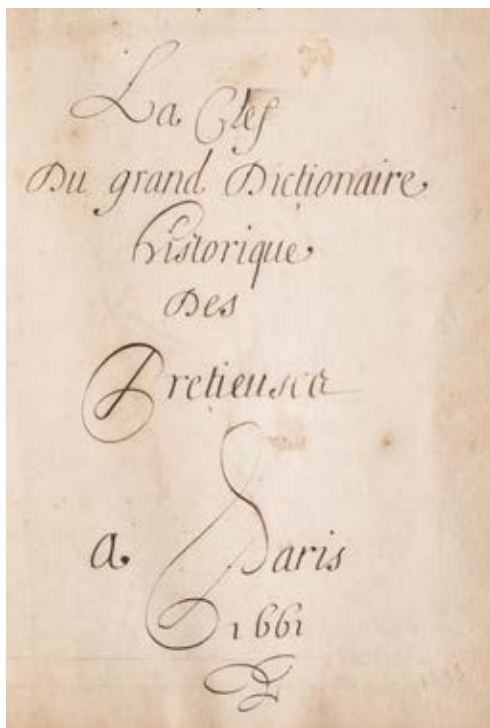 La Clef
Du grand Dictionaire
historique
Des
Pretieuses
a Paris
1661